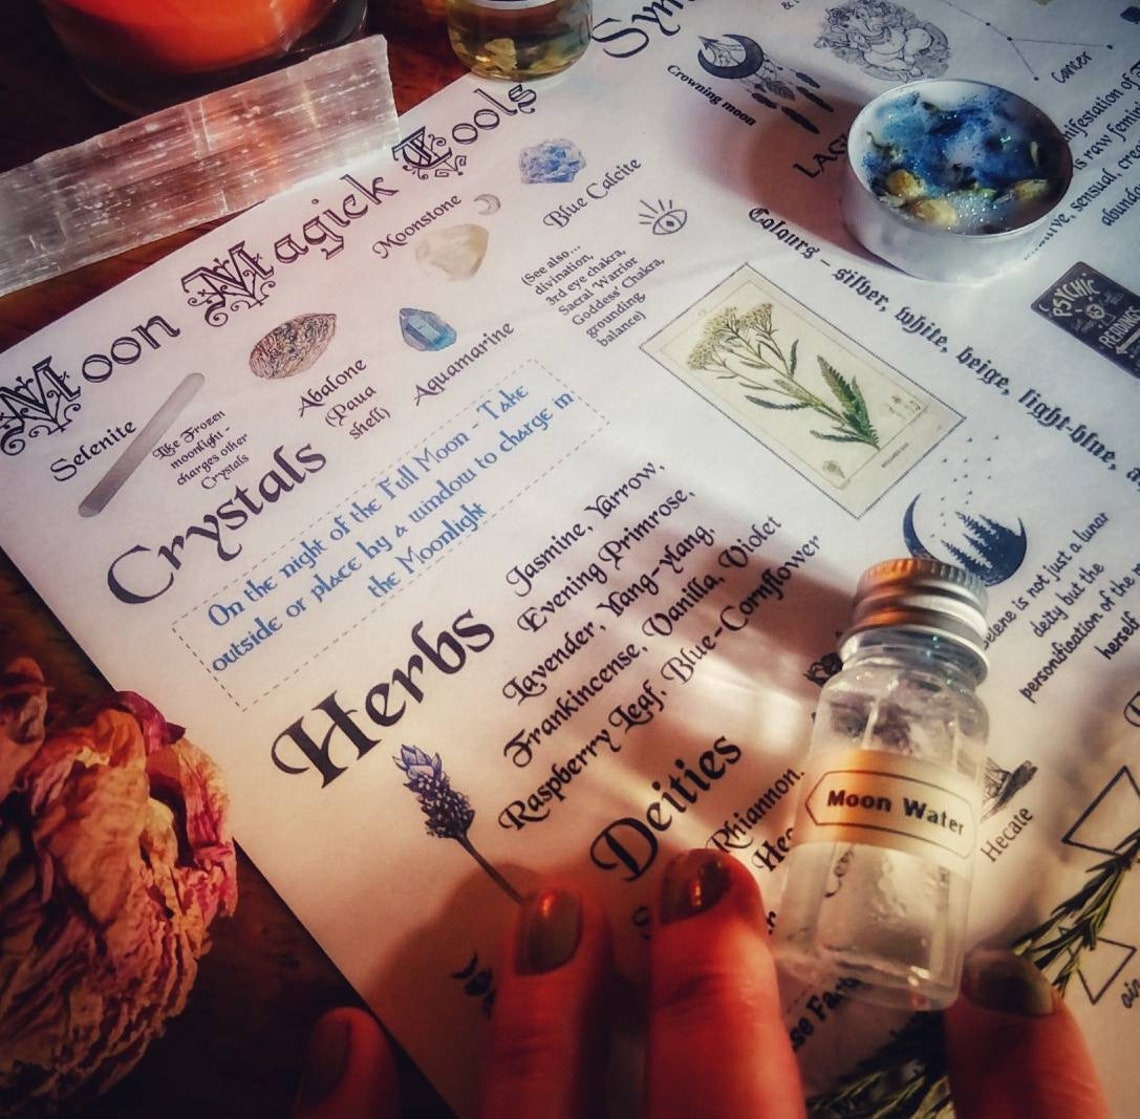 Moon Magick Tools
Selenite
like Frozen
moonlight -
charges other
Crystals
Abalone
(Paua
shell)
Moonstone
Aquamarine
Blue Calcite
(See also...
divination,
3rd eye chakra,
Sacral 'Warrior
Goddess' Chakra,
grounding
balance)
Crystals
On the night of the Full Moon - Take
outside or place by a window to charge in
the Moonlight
Herbs
Jasmine, Yarrow,
Evening Primrose,
Lavender, Ylang-Ylang,
Frankincense, Vanilla, Violet
Raspberry Leaf, Blue-Cornflower
Deities
Rhiannon,
Crowning moon
Cancer
Colours - silver, white, beige, light-blue,
PSYCHIC
READINGS
is not just a lunar
deity but the
personification of the
herself
Hecate
Moon Water